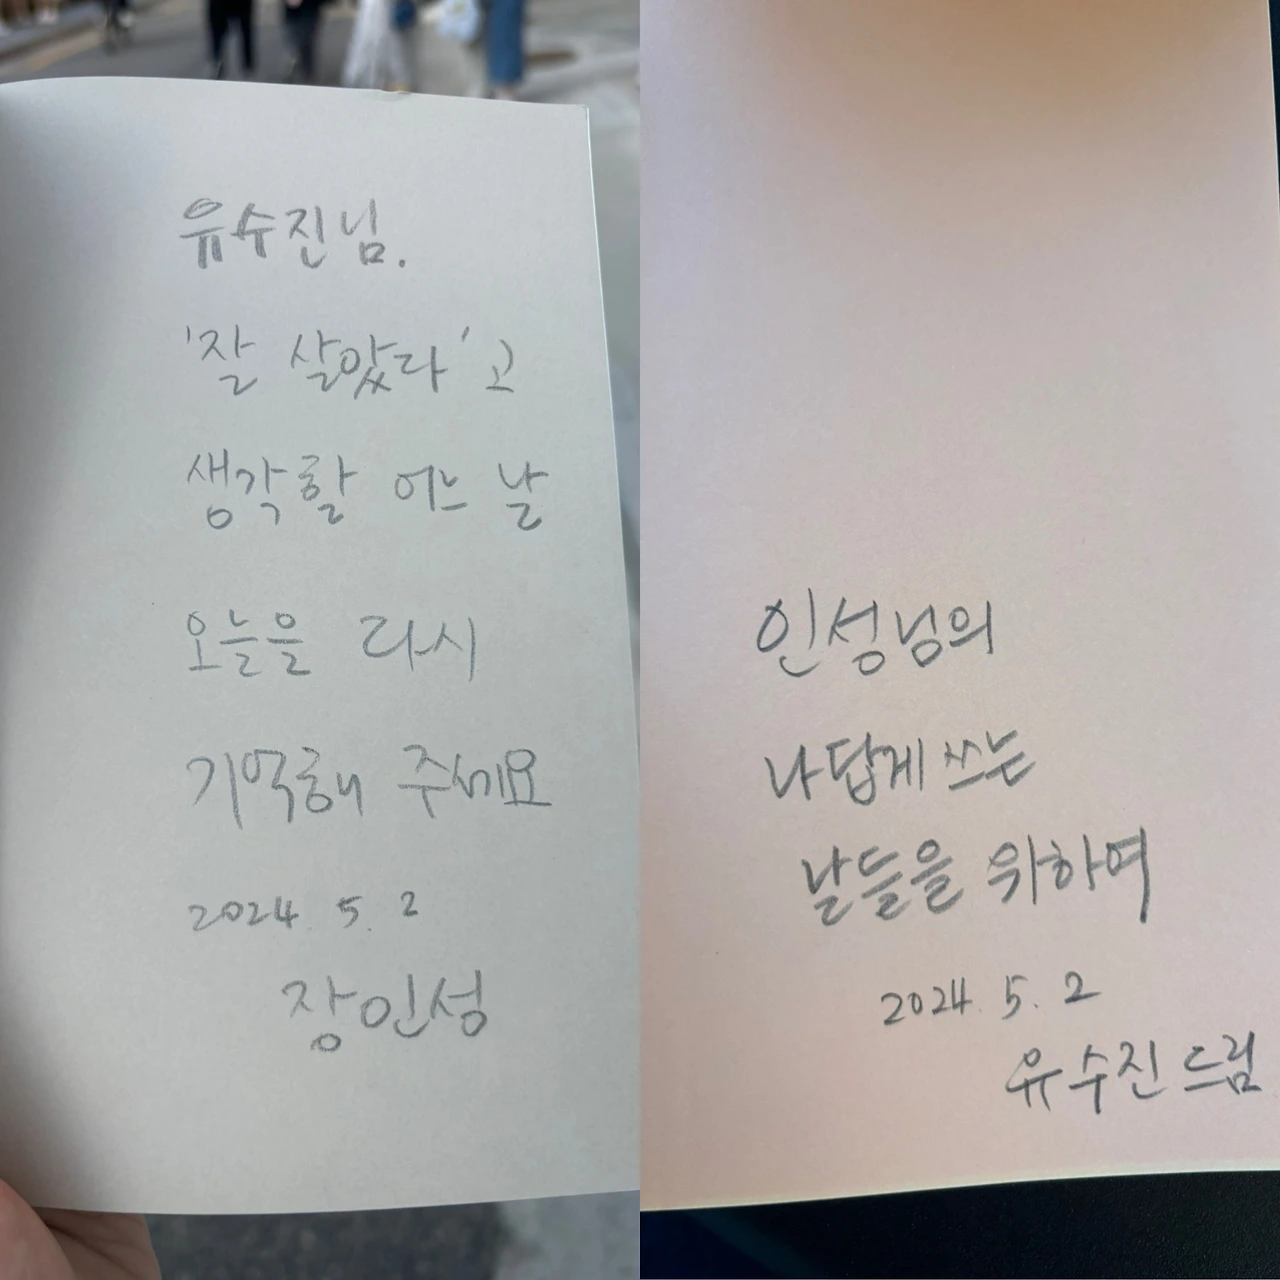 유수진님.
'잘 살았다'고
생각할 어느 날
오늘을 다시
기억해 주세요
2024. 5. 2
장인성
인성님의
나답게 쓰는
날들을 위하여
2024. 5. 2
유수진 드림